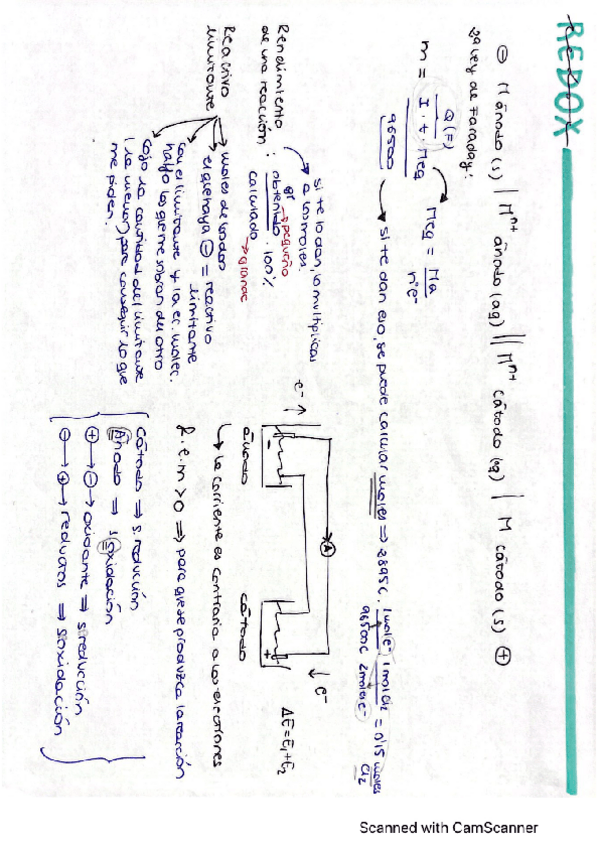 REDOX
⊖ M ánodo (s) | Mⁿ⁺ ánodo (aq) || Mⁿ⁺ cátodo (aq) | M cátodo (s) ⊕
2ª Ley de Faraday:
Q (F)
m = I · t · Meq / 96500
Meq = Ma / nºe⁻
si te dan eso, se puede calcular moles ⇒ 2895C · 1 mol e⁻ / 96500C · 1 mol Cl₂ / 2 mol e⁻ = 0'15 moles Cl₂
si te lo dan, lo multiplicas
a los moles.
Rendimiento
de una reacción : gr obtenido → pequeño / calculado → grande · 100%
Reactivo
limitante
→ moles de todos
el que haya ⊖ = reactivo
limitante
con el limitante y la ec. molec.
hallo los que me sobran del otro
cojo la cantidad del limitante
(la menor) para conseguir lo que
me piden.
e⁻
A
e⁻
-
+
ánodo
cátodo
ΔE = E₁ + E₂
↳ la corriente es contraria a los electrones
f.e.m > 0 ⇒ para que se produzca la reacción
Cátodo ⇒ s. reducción
Ánodo ⇒ s. oxidación
⊕ → ⊖ → oxidante ⇒ s. reducción
⊖ → ⊕ → reductor ⇒ s. oxidación
Scanned with CamScanner